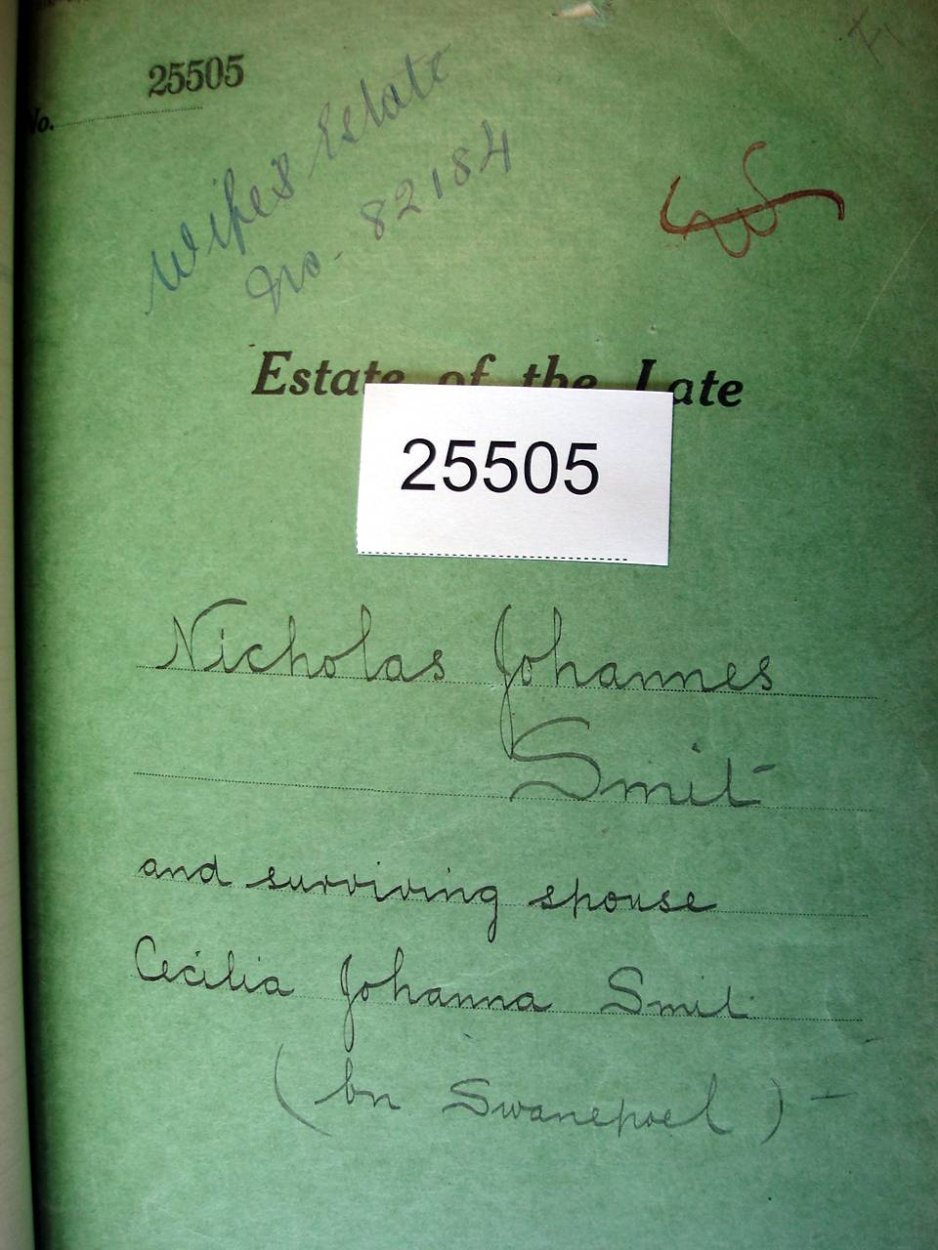 25505
No.
Wifes Estate
No. 82184
Estate of the Late
25505
Nicholas Johannes
Smit
and surviving spouse
Cecilia Johanna Smit
(bn Swanepoel) -